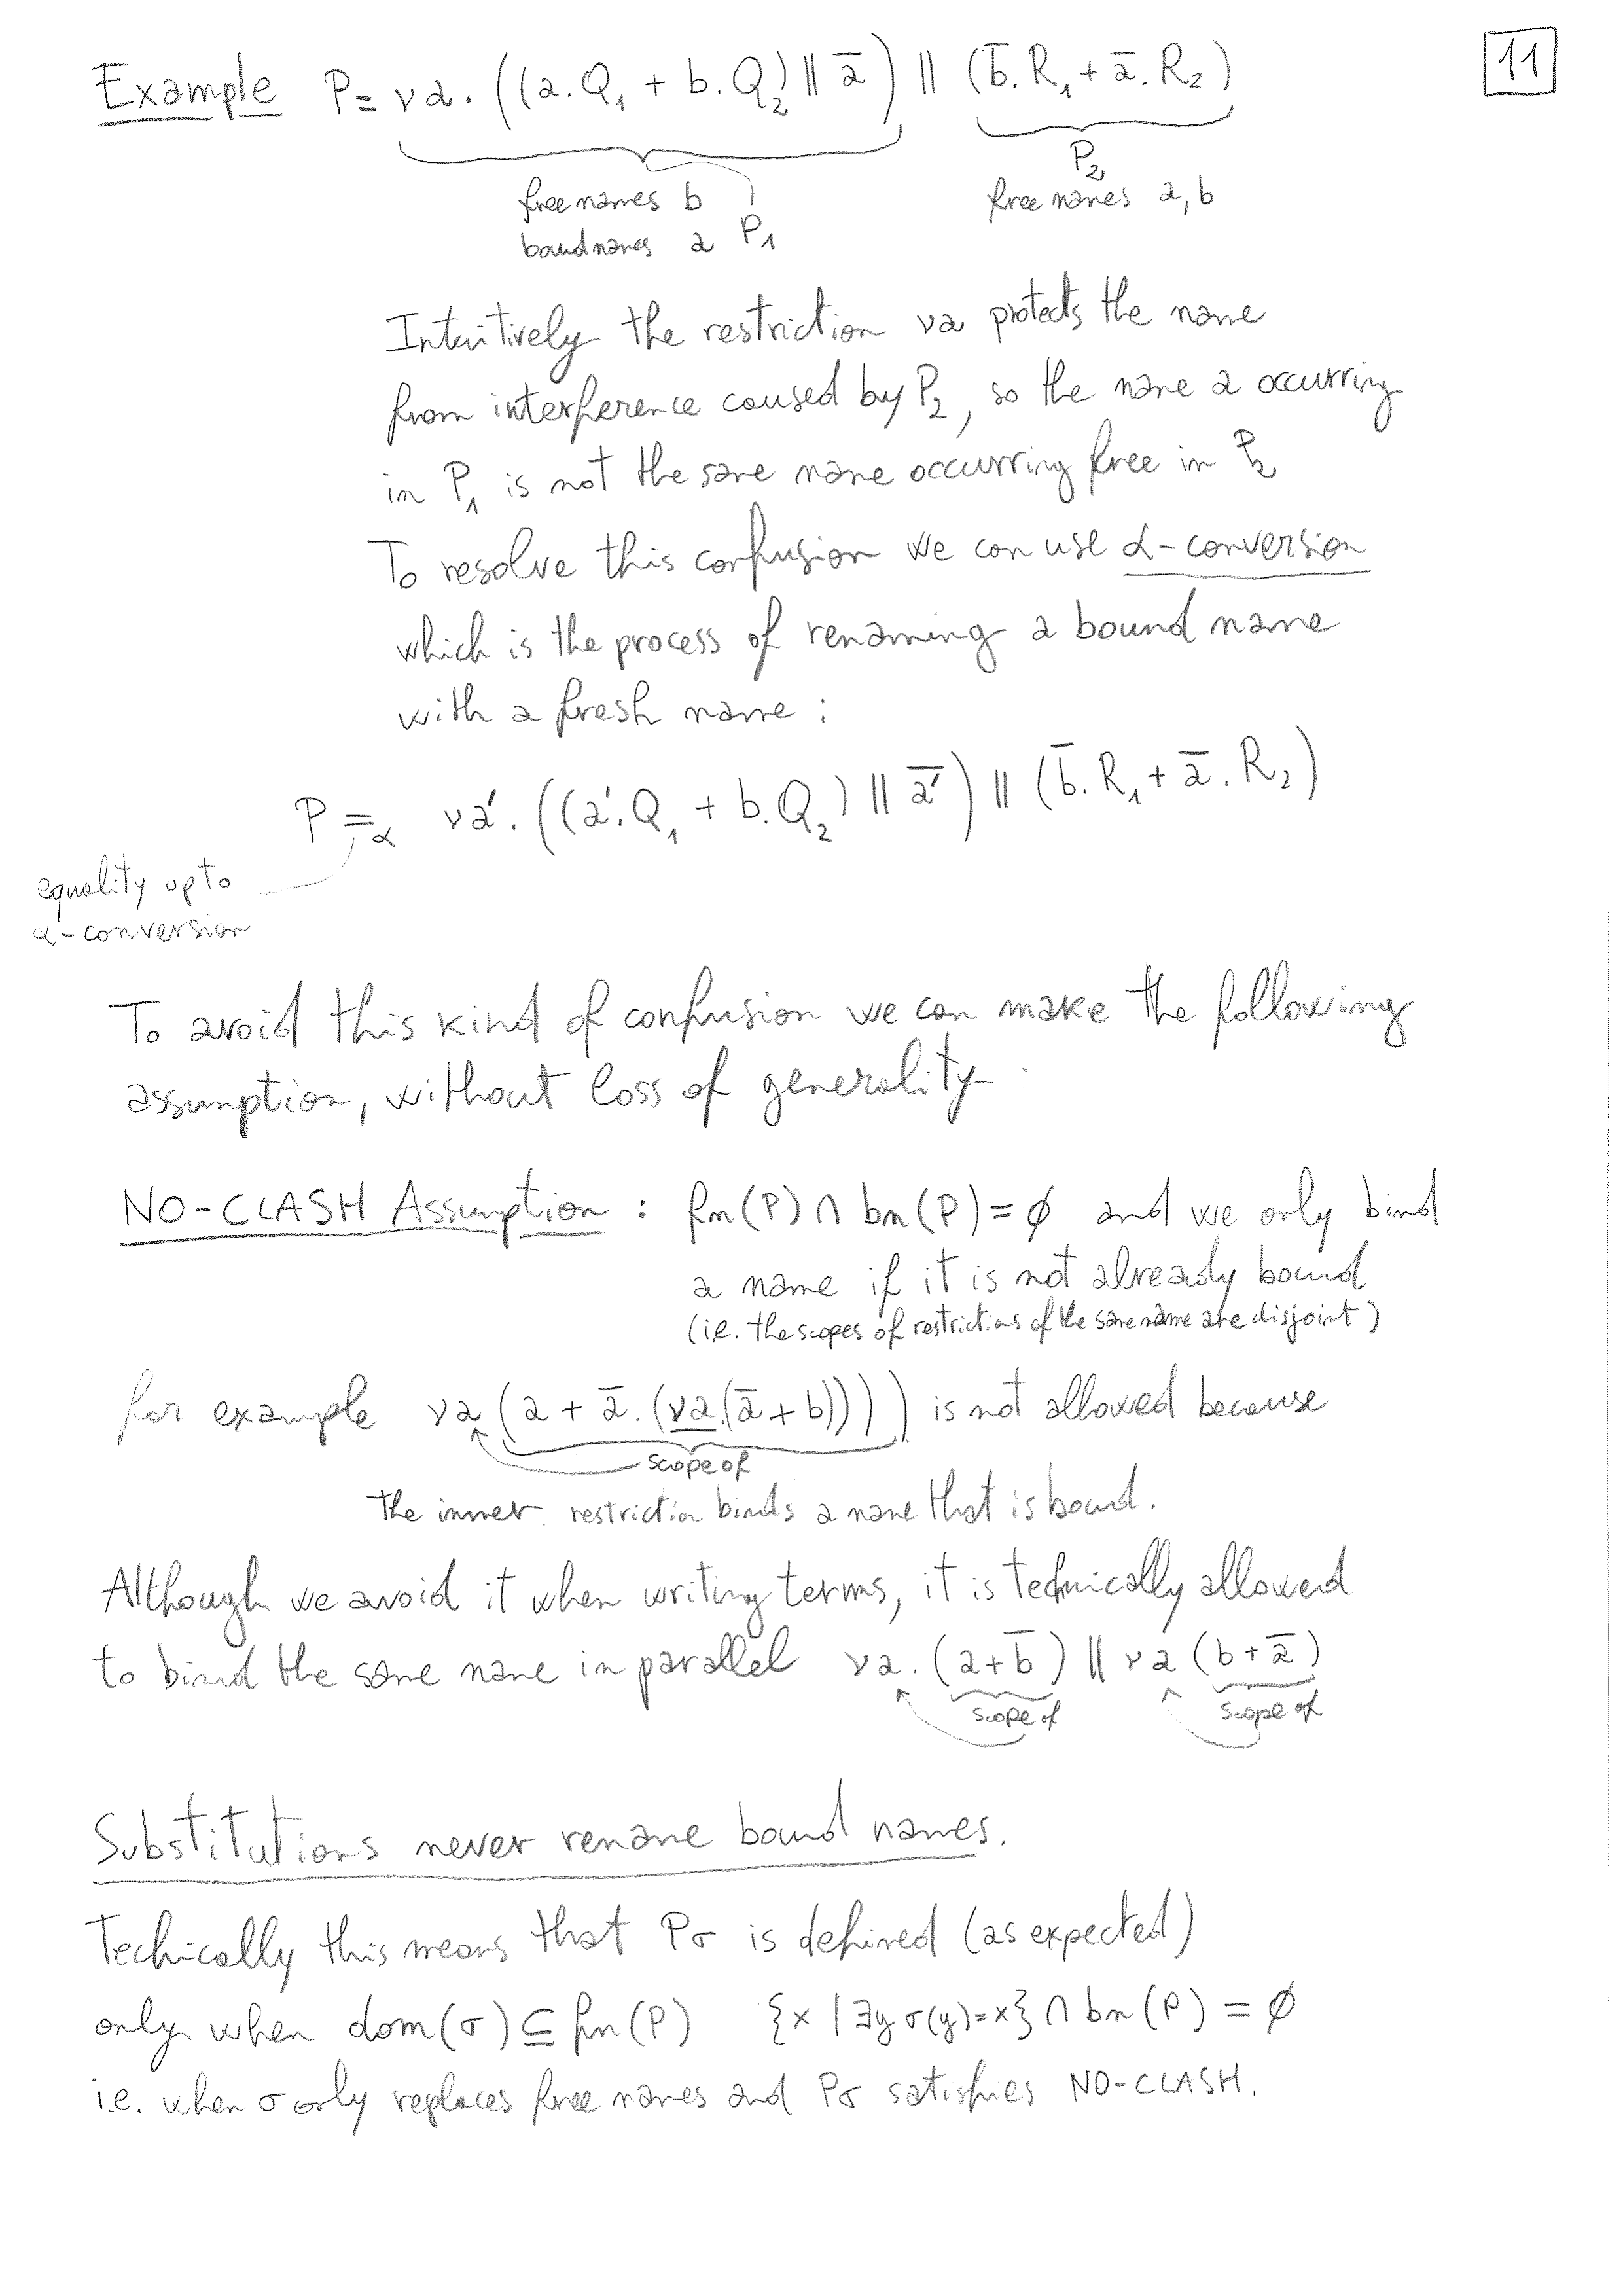 11
Example P = νa. ((a.Q₁ + b.Q₂) || a̅) || (b̅.R₁ + a̅.R₂)
P₂
free names b
free names a, b
bound names a P₁
Intuitively the restriction νa protects the name
from interference caused by P₂, so the name a occurring
in P₁ is not the same name occurring free in P₂
To resolve this confusion we can use α-conversion
which is the process of renaming a bound name
with a fresh name :
P =α νa'. ((a'.Q₁ + b.Q₂) || a̅') || (b̅.R₁ + a̅.R₂)
equality up to
α-conversion
To avoid this kind of confusion we can make the following
assumption, without loss of generality :
NO-CLASH Assumption : fn(P) ∩ bn(P) = ∅ and we only bind
a name if it is not already bound
(i.e. the scopes of restrictions of the same name are disjoint)
for example νa (a + a̅. (νa.(a̅ + b)))) is not allowed because
scope of
the inner restriction binds a name that is bound.
Although we avoid it when writing terms, it is technically allowed
to bind the same name in parallel νa. (a + b̅) || νa (b + a̅)
scope of scope of
Substitutions never rename bound names.
Techically this means that Pσ is defined (as expected)
only when dom(σ) ⊆ fn(P) {x | ∃y σ(y)=x} ∩ bn(P) = ∅
i.e. when σ only replaces free names and Pσ satisfies NO-CLASH.